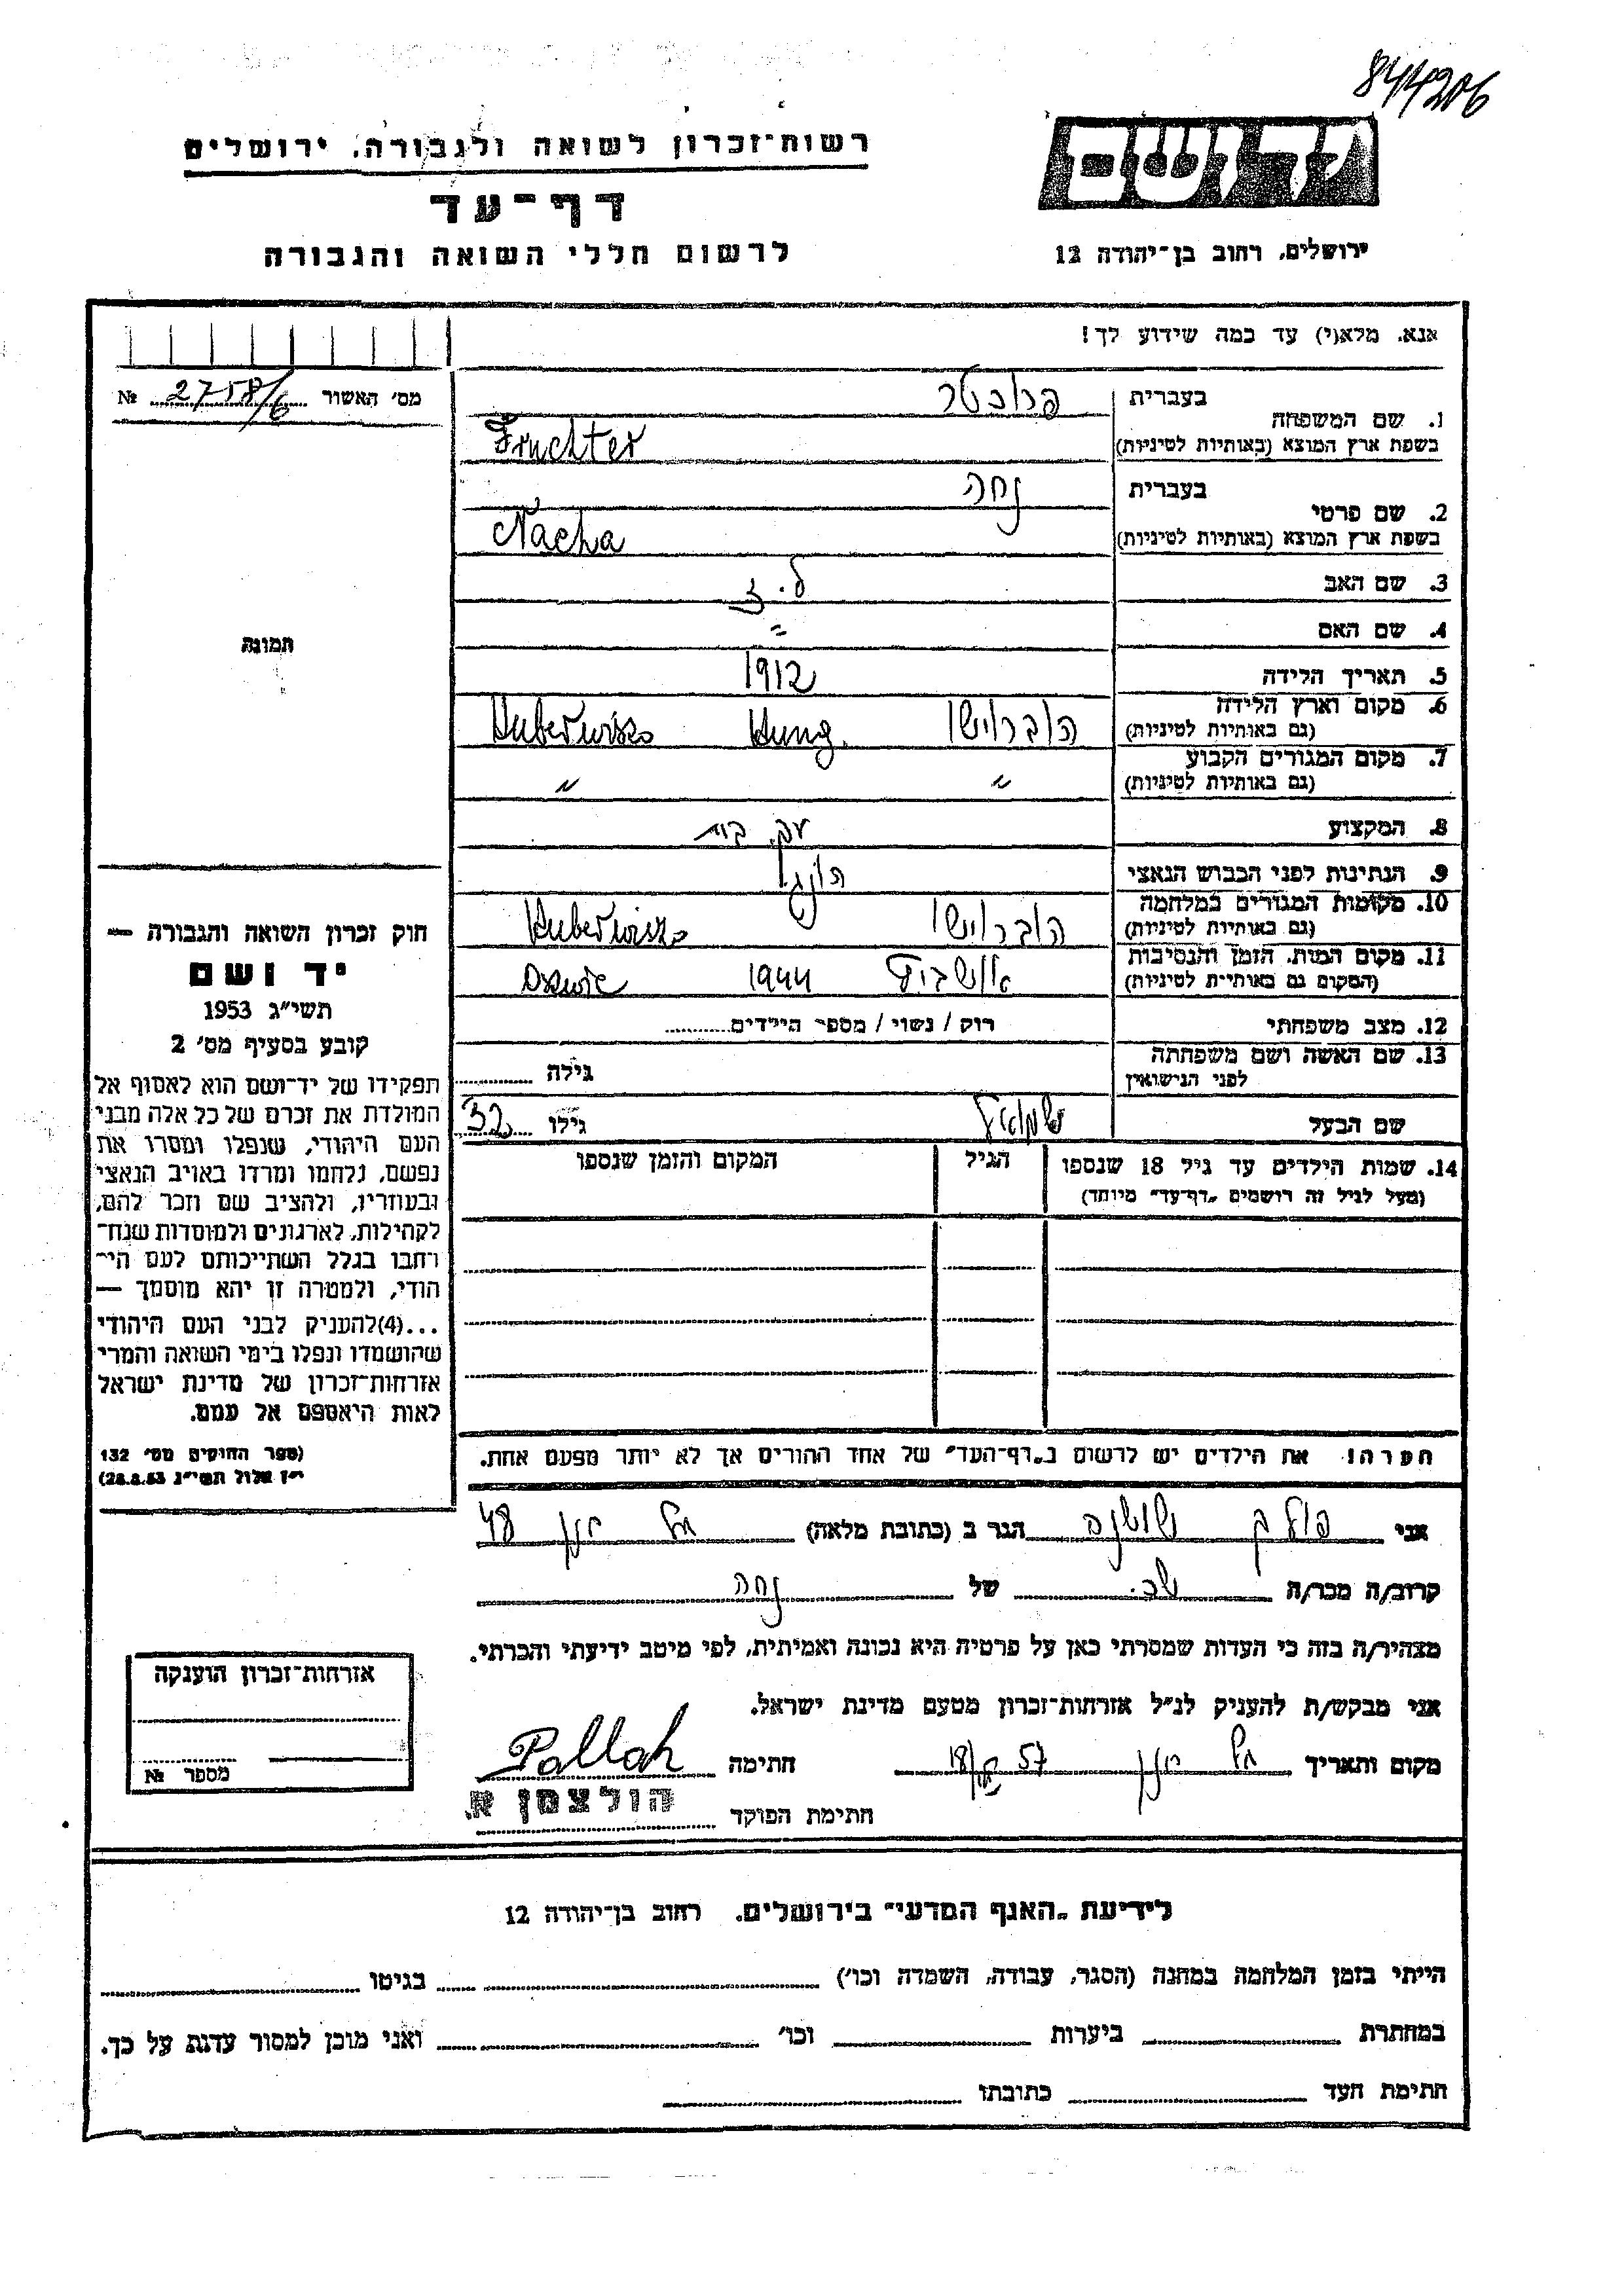 844206
רשות־זכרון לשואה ולגבורה, ירושלים
דף־עד
לרשום חללי השואה והגבורה
יד ושם
ירושלים, רחוב בן־יהודה 12
אנא, מלא(י) עד כמה שידוע לך!
מס' האשור 2758/6 №
1. שם המשפחה
בעברית פרוכטר
בשפת ארץ המוצא (באותיות לטיניות) Fruchter
2. שם פרטי
בעברית נחה
בשפת ארץ המוצא (באותיות לטיניות) Nacha
3. שם האב ל.י.
4. שם האם =
5. תאריך הלידה 1912
6. מקום וארץ הלידה
(גם באותיות לטיניות) Hung.
7. מקום המגורים הקבוע
(גם באותיות לטיניות) " "
8. המקצוע עק. בית
9. הנתינות לפני הכבוש הנאצי
10. מקומות המגורים במלחמה
(גם באותיות לטיניות)
11. מקום המות, הזמן והנסיבות
(המקום גם באותיות לטיניות) 1944
12. מצב משפחתי רוק / נשוי / מספר הילדים
13. שם האשה ושם משפחתה
לפני הנישואין גילה
שם הבעל גילו 32
14. שמות הילדים עד גיל 18 שנספו הגיל המקום והזמן שנספו
(מעל לגיל זה רושמים „דף־עד" מיוחד)
תמונה
חוק זכרון השואה והגבורה —
יד ושם
תשי"ג 1953
קובע בסעיף מס' 2
תפקידו של יד־ושם הוא לאסוף אל
המולדת את זכרם של כל אלה מבני
העם היהודי, שנפלו ומסרו את
נפשם, נלחמו ומרדו באויב הנאצי
ובעוזריו, ולהציב שם וזכר להם,
לקהילות, לארגונים ולמוסדות שנח־
רבו בגלל השתייכותם לעם הי־
הודי, ולמטרה זו יהא מוסמך —
...(4)להעניק לבני העם היהודי
שהושמדו ונפלו בימי השואה והמרי
אזרחות־זכרון של מדינת ישראל
לאות היאספם אל עמם.
(ספר החוקים מס' 132
י"ז אלול תשי"ג 28.8.53)
הערה! את הילדים יש לרשום ב„דף־העד" של אחד ההורים אך לא יותר מפעם אחת.
אני פולק שושנה הגר ב (כתובת מלאה) 48
קרוב/ה מכר/ה שכ. של נחה
מצהיר/ה בזה כי העדות שמסרתי כאן על פרטיה היא נכונה ואמיתית, לפי מיטב ידיעתי והכרתי.
אני מבקש/ת להעניק לנ"ל אזרחות־זכרון מטעם מדינת ישראל.
מקום ותאריך 57 חתימה Pollak
חתימת הפוקד הולצמן א.
אזרחות־זכרון הוענקה
מספר №
לידיעת „האגף המדעי" בירושלים, רחוב בן־יהודה 12
הייתי בזמן המלחמה במחנה (הסגר, עבודה, השמדה וכו') בגיטו
במחתרת ביערות וכו' ואני מוכן למסור עדות על כך.
חתימת העד כתובתו